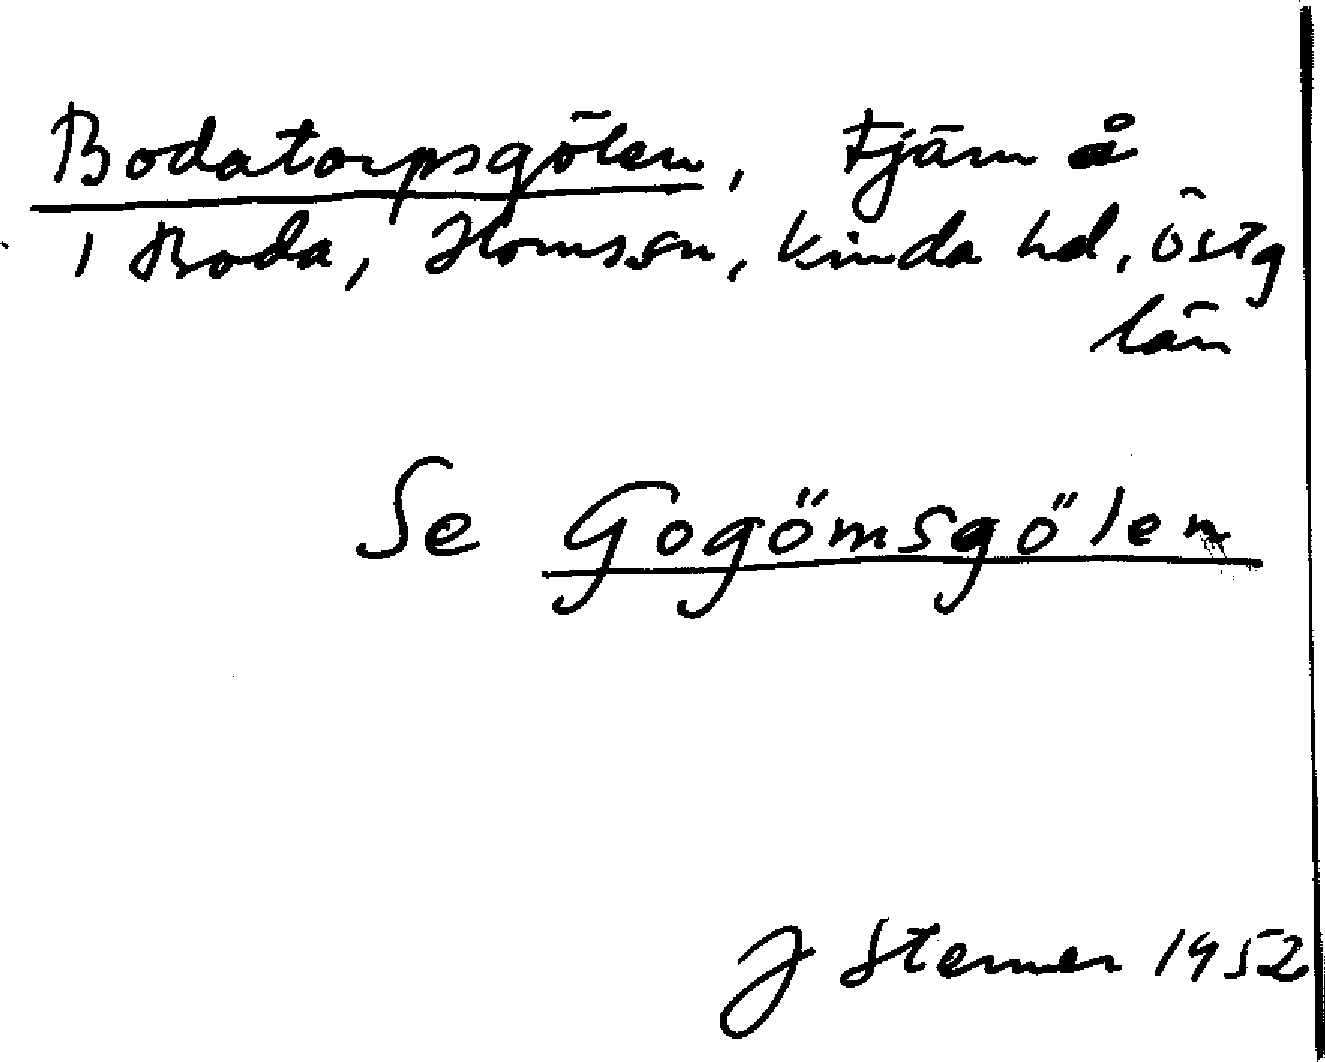 Bodatorpsgölen, tjärn å
1 Boda, Horns sn, Kinda hd, Östg
län
Se Gogömsgölen
J Sterner 1952